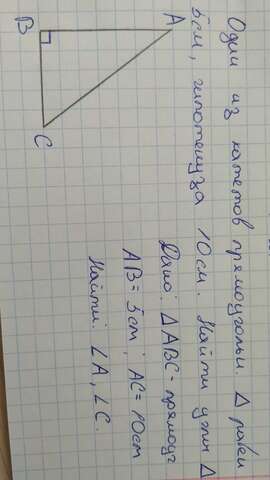 Один из катетов прямоугольн. Δ равен
5см, гипотенуза 10см. Найти углы Δ
Дано: ΔABC - прямоуг
AB = 5см; AC = 10см
Найти: ∠A, ∠C.
A
B
C